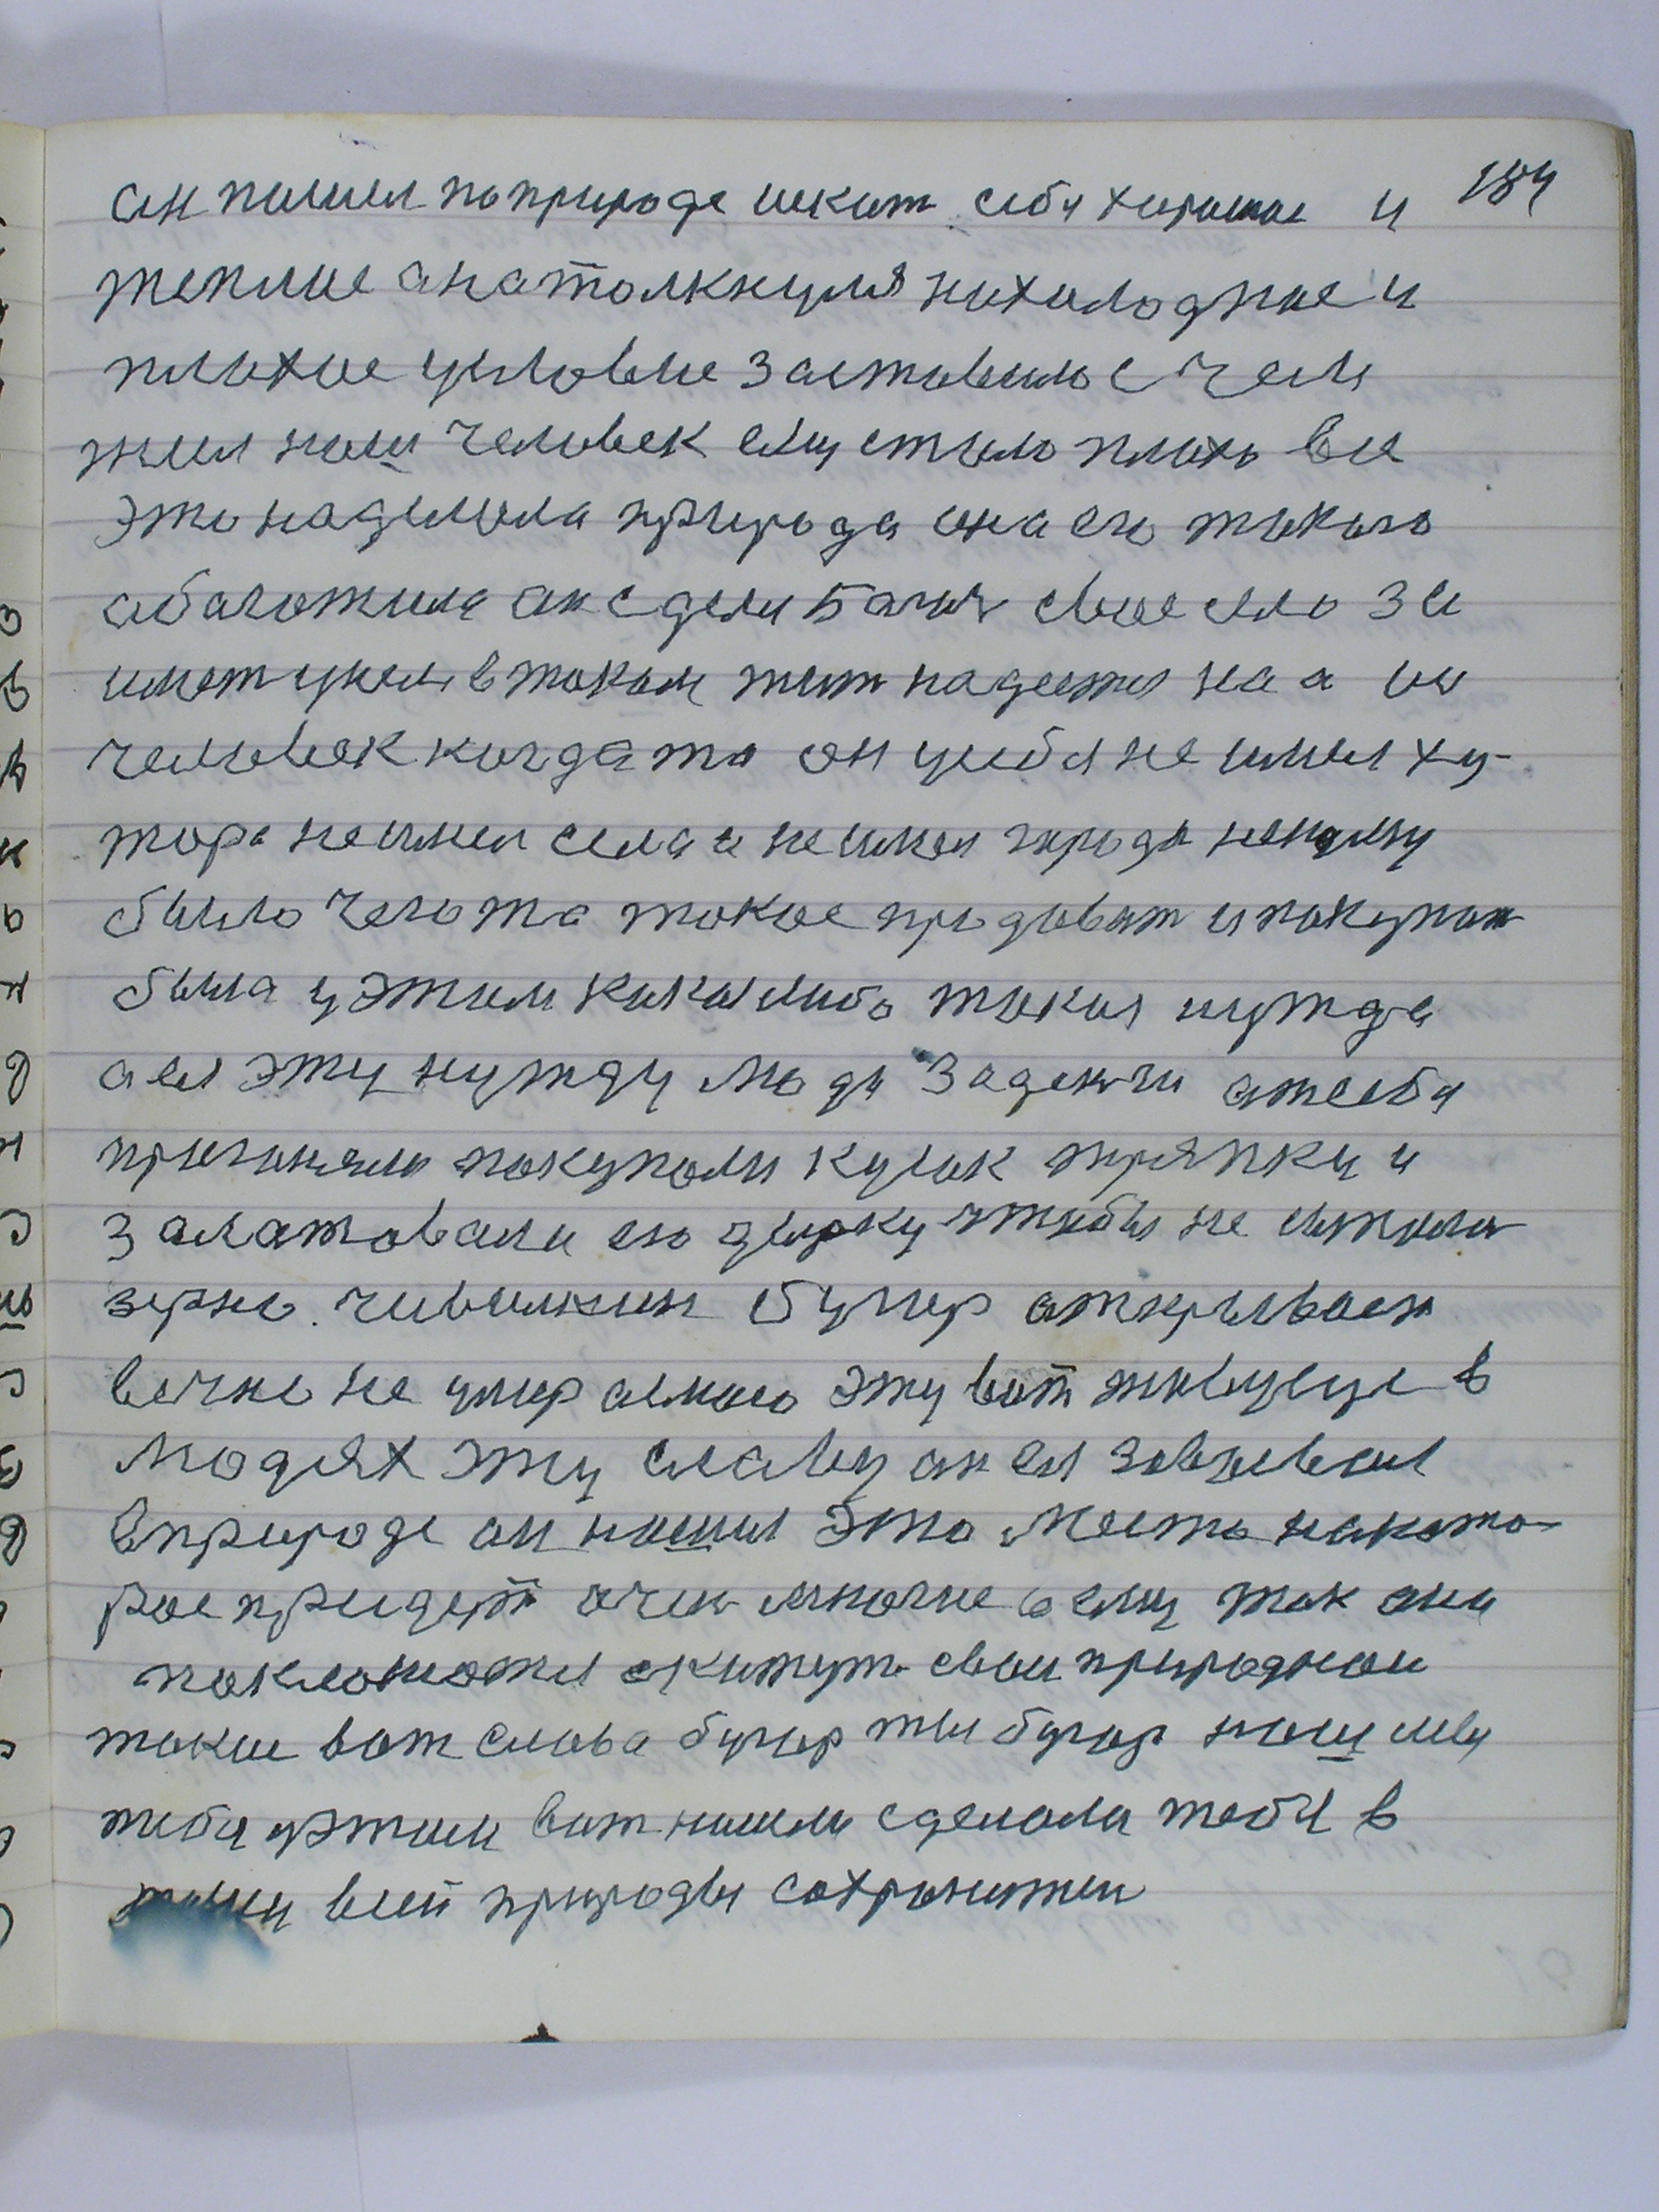 184
он пошел поприроде искат себя хорошое и
теплое анатолкнулся нахолодное и
плохое условие заставило с чем
жил наш человек ему стало плохо все
это наделала природа она его такого
обаготила он сдела Багач свое село за
имет умел в таком жит надеятся на а из
человек когдато он усебя не имел ху-
тора неимел села и неимел города ненаему
было чегота такое продоват и покупат
была у этим какаялибо такая нужда
а ея эту нужду люди заденги отсебя
прогоняли покупали кусок тряпки и
залатовали его дырку чтобы не
зерно. чивилкин бугор открывает
вечно не умераемаю эту вот живущее в
людях эту славу он ея завоевал
вприроде он нашел это место накото-
рое придет очен многие к ему так они
поклонятся скажут свои природнои
такие вот слова бугор ты бугор нашли мы
тебя уэтим вот нашли сделали тебя в
всей природы сохранител